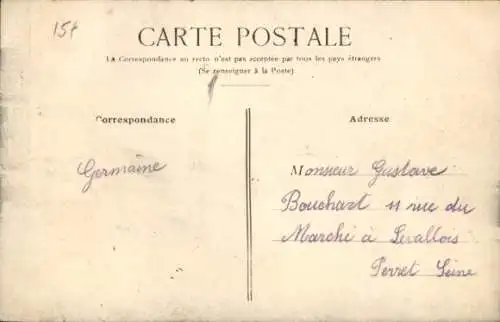 15+
CARTE POSTALE
La Correspondance au recto n'est pas acceptée par tous les pays étrangers
(Se renseigner à la Poste)
Correspondance
Adresse
Germaine
Monsieur Gustave
Bouchart 11 rue du
Marché à Levallois
Perret Seine